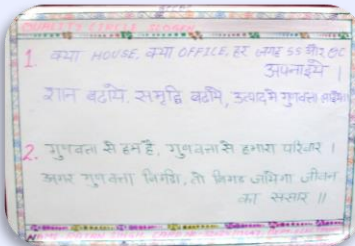 QUALITY CIRCLE SLOGAN
1. क्या HOUSE, क्या OFFICE, हर जगह 5S और QC
अपनाइये ।
शान बढाये, समृद्धि बढाये, उत्पादमे गुणवत्ता
2. गुणवत्ता से हम है, गुणवत्ता से हमारा परिवार ।
अगर गुणवत्ता बिगडी, तो बिगड जायेगा जीवन
का संसार ॥